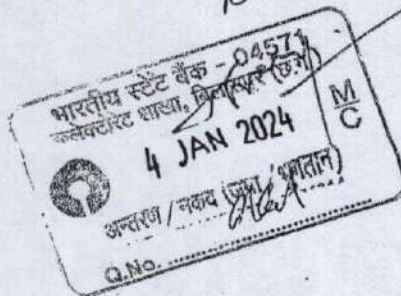 भारतीय स्टेट बैंक - 04571
कलेक्टोरेट शाखा, बिलासपुर (छ.ग.)
4 JAN 2024
M/C
अन्तरण / नकद (जमा / भुगतान)
Q.No. ....................